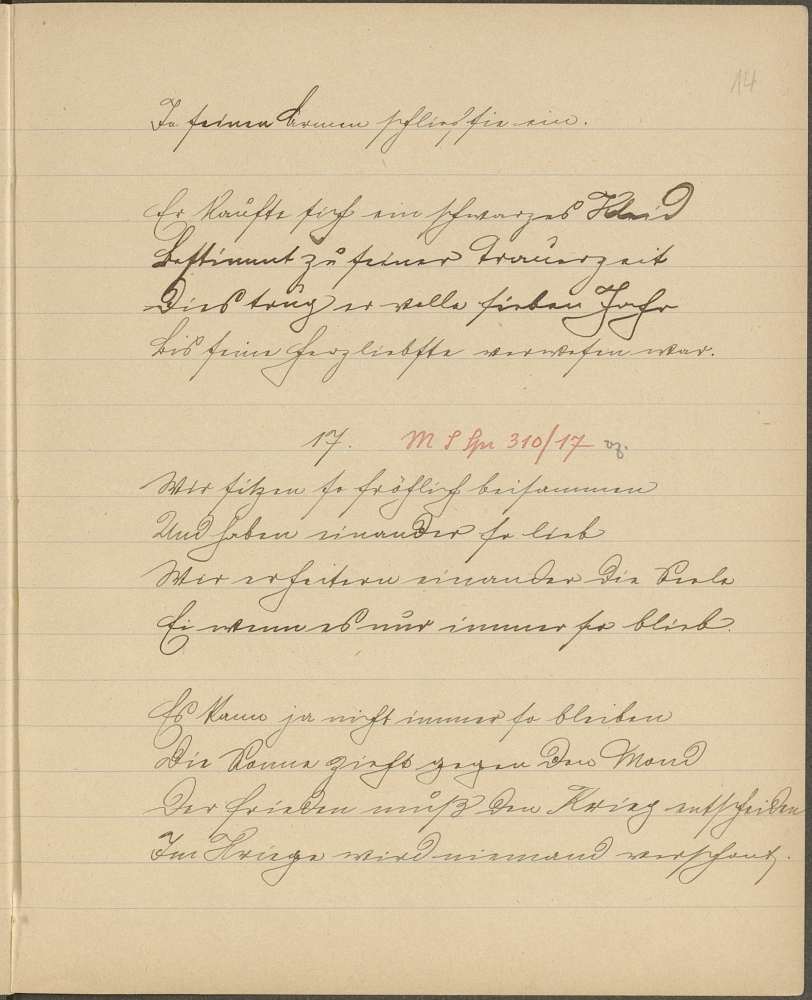 14
In seinen Armen schlief sie ein.
Er kaufte sich ein schwarzes Kleid
Bestimmt zu seiner Trauerzeit
Dies trug er volle sieben Jahr
Bis seine Herzliebste verwesen war.
17. M S 310/17
Wir sitzen so fröhlich beisammen
Und haben einander so lieb
Wir erheitern einander die Seele
Ei wenn es nur immer so blieb.
Es kann ja nicht immer so bleiben
Die Sonne zieht gegen den Mond
Der Frieden muß den Krieg entscheiden
Im Kriege wird niemand verschont.